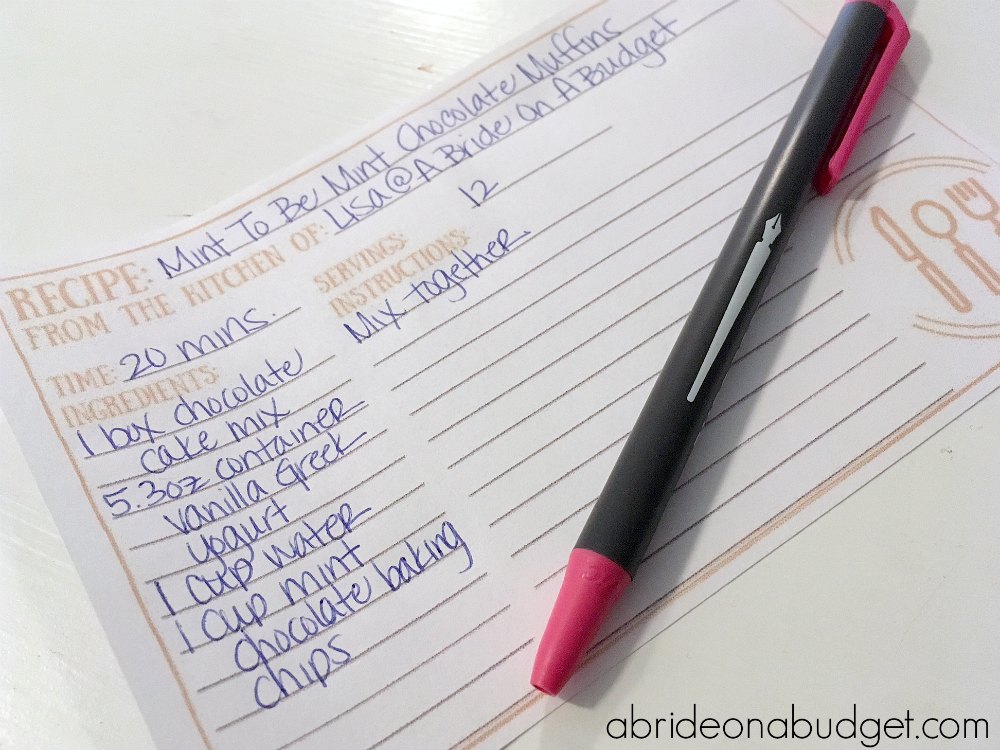 RECIPE: Mint To Be Mint Chocolate Muffins
FROM THE KITCHEN OF: Lisa@A Bride On A Budget
TIME: 20 mins.
SERVINGS: 12
INGREDIENTS:
1 box chocolate
cake mix
5.3oz container
vanilla Greek
yogurt
1 cup water
1 cup mint
chocolate baking
chips
INSTRUCTIONS:
Mix together.
abrideonabudget.com